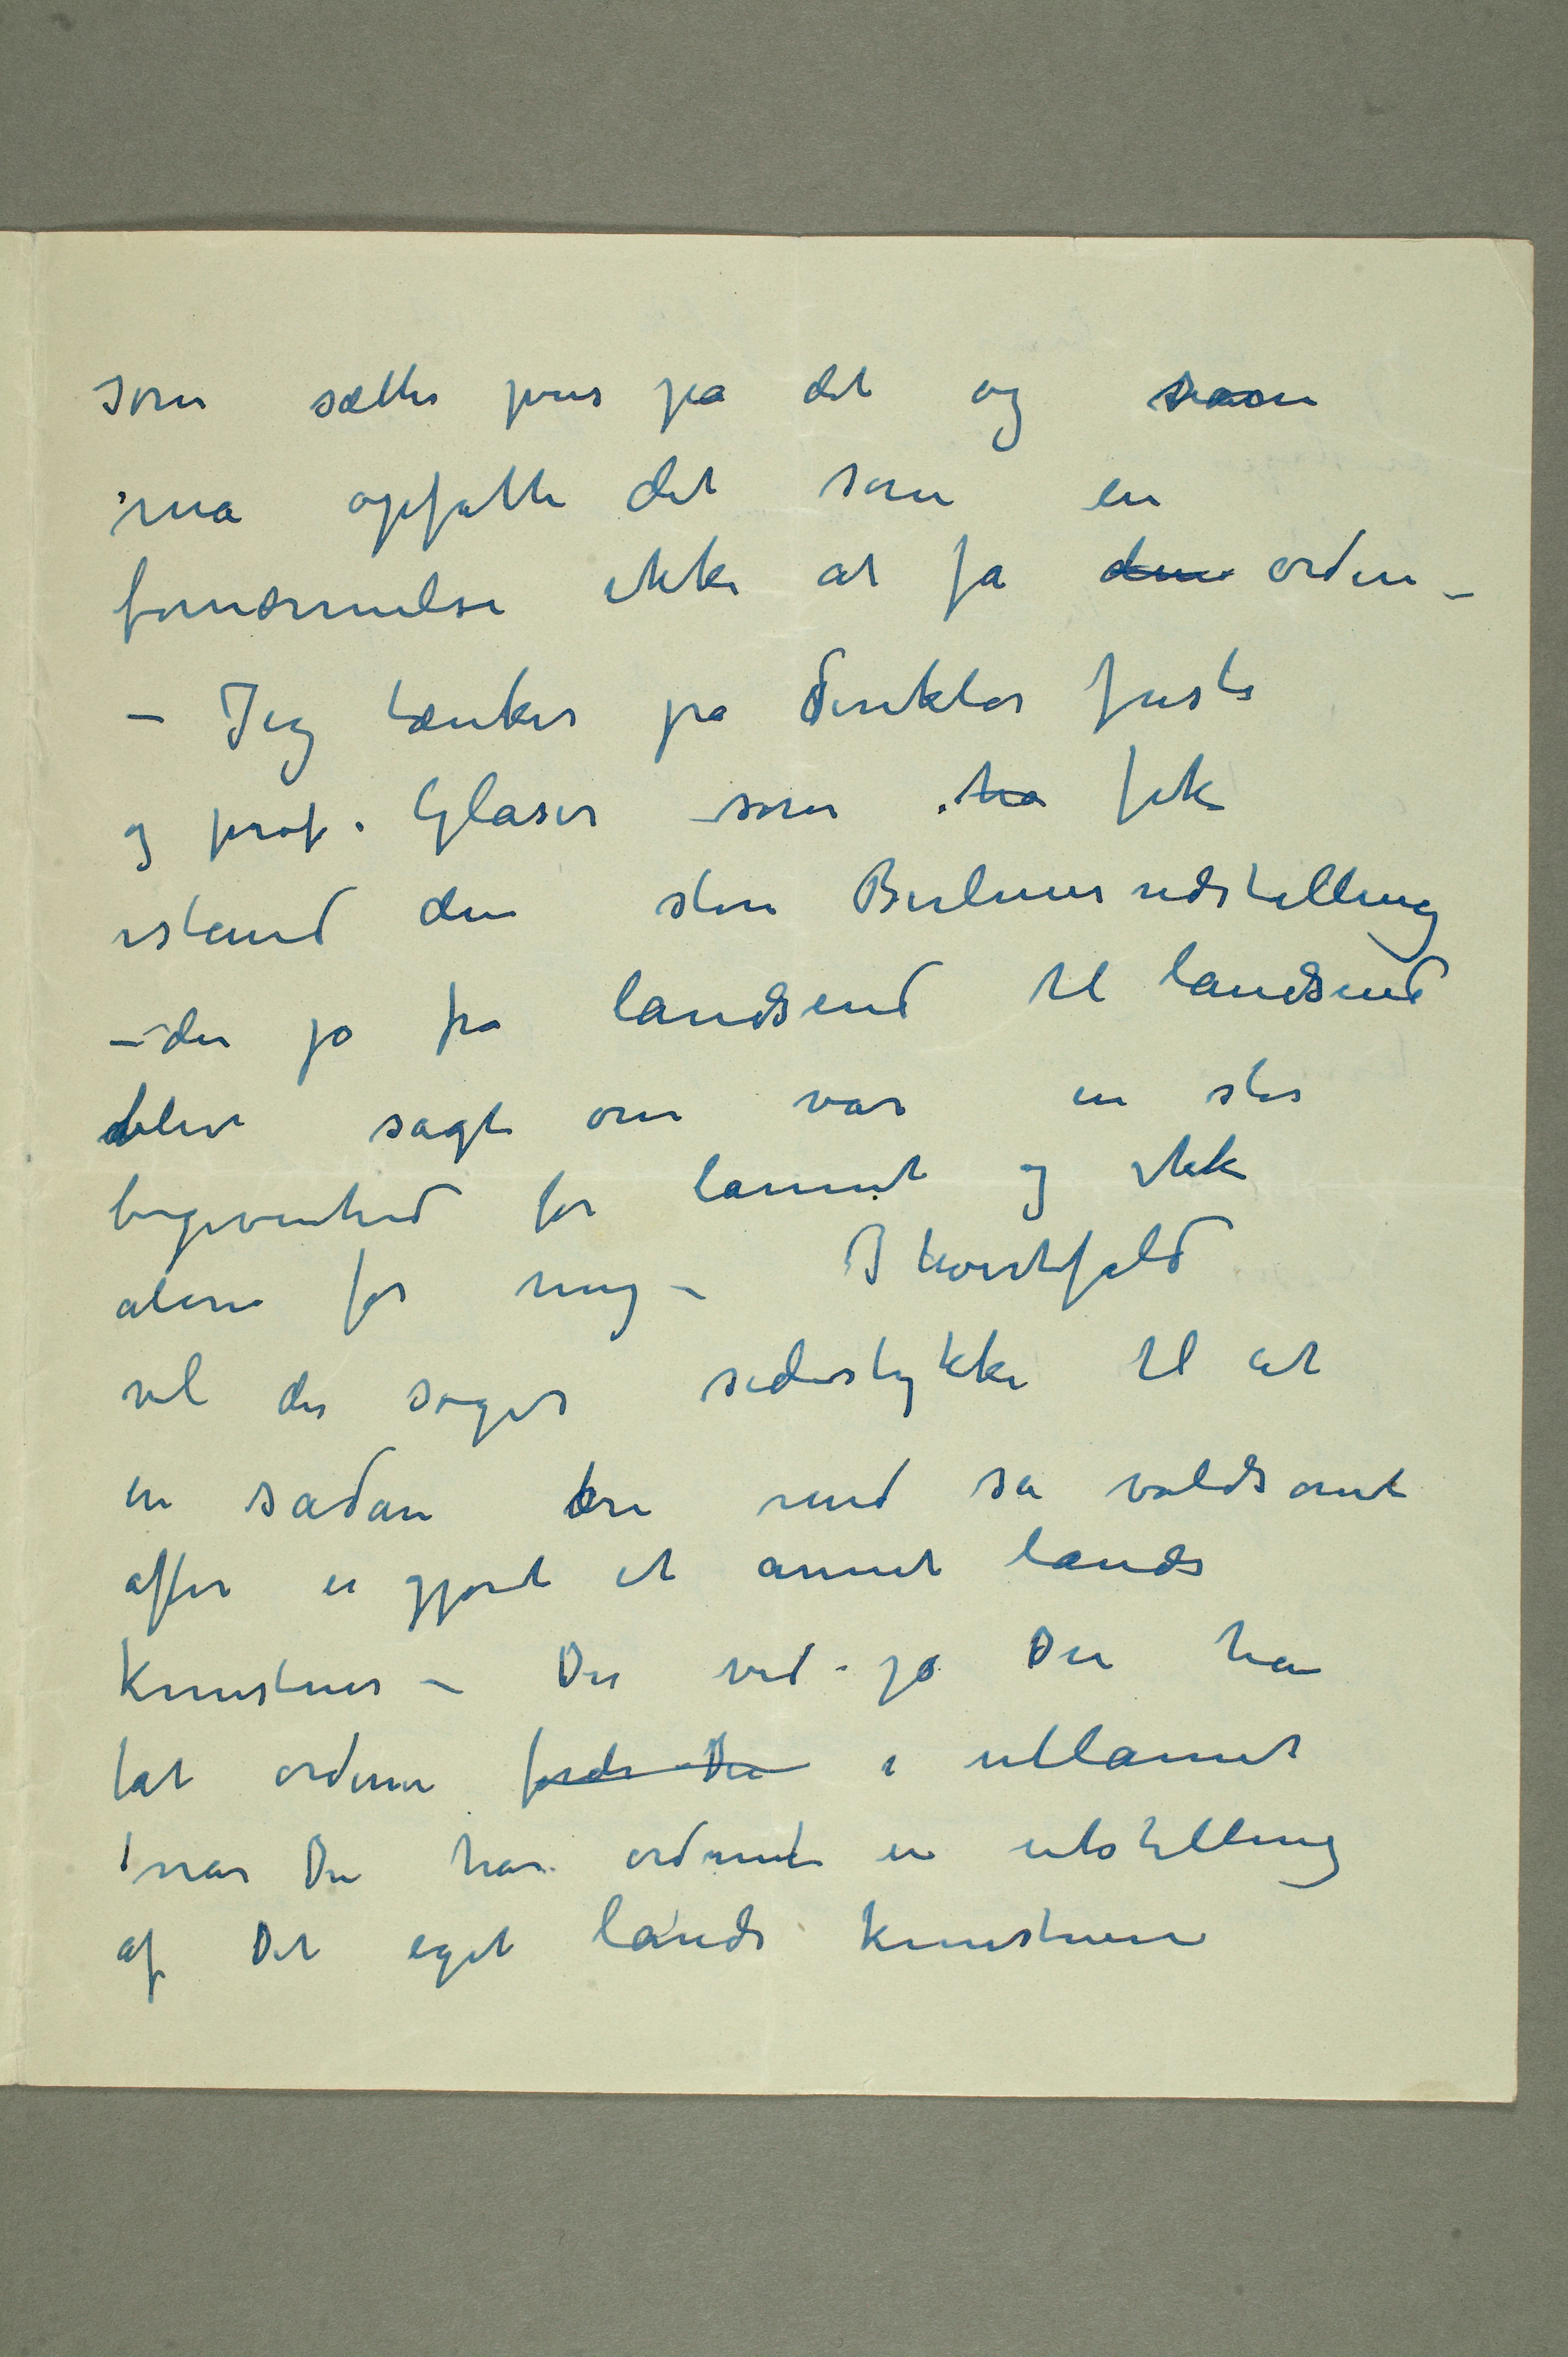 som sætter pris på det og som
må opfatte det som en
fornærmelse ikke at få den orden –
– Jeg tænker på direktør Justi
og prof. Glaser som ha fik
istand den store Berlinerudstilling
– der jo fra landsend til landsend
blev sagt om var en stor
begivenhed for lannet og ikke
alene for mig – I hvertfald
vil der søges sidestykke til at
en sådan ære med så voldsomt
offer er gjort et annet lands
kunstner – De ved jo De har
fåt ordener fordi De i utlannet
når De har ordnet en utstilling
af Det eget lands kunstnere